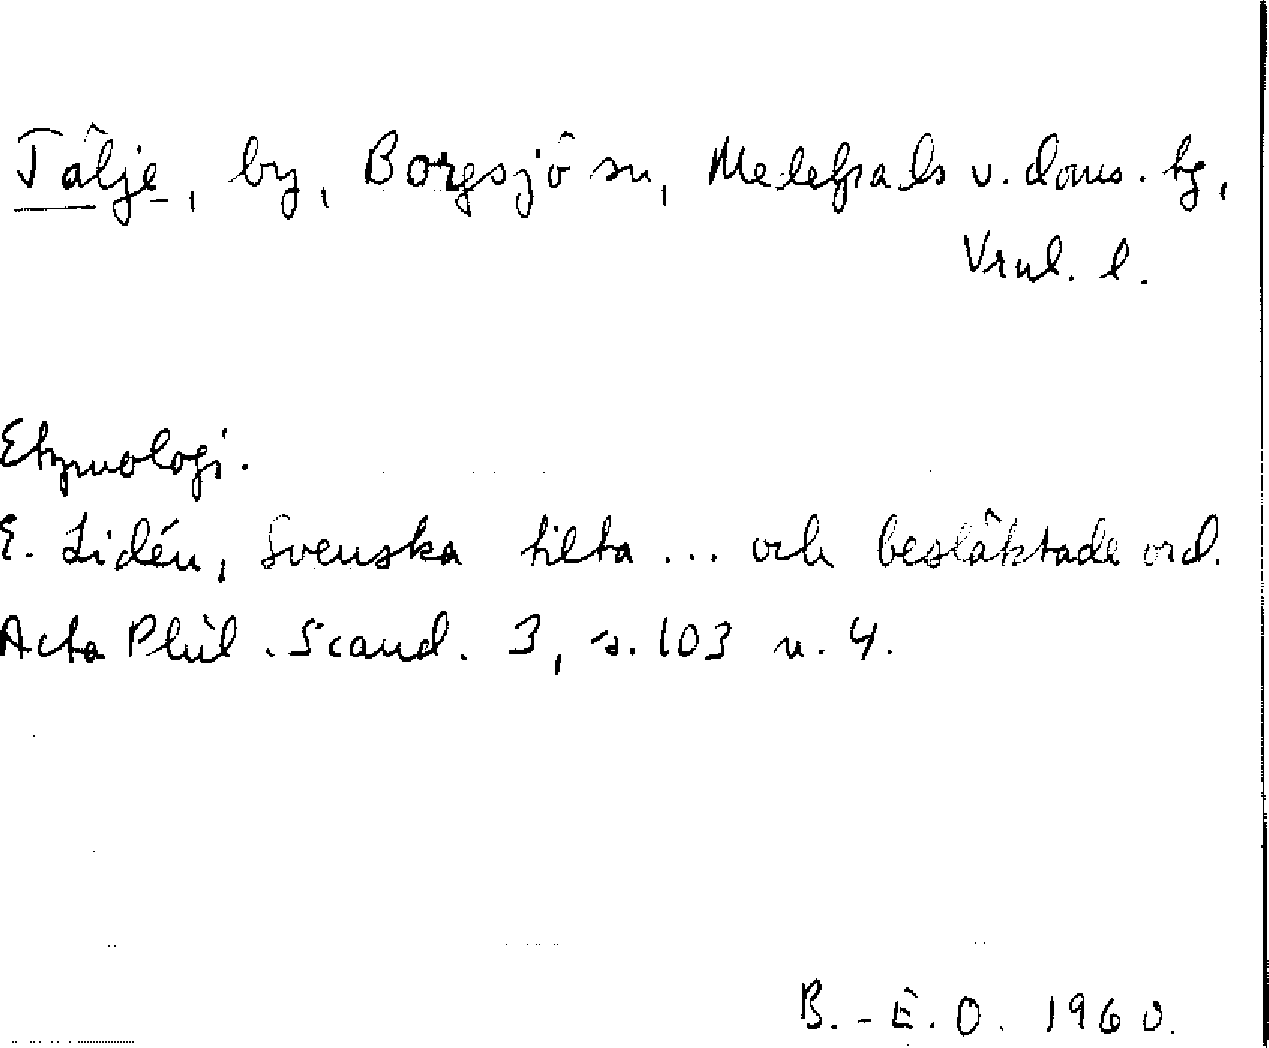 Tälje, by, Borgsjö sn, Medelpads v. doms. tg,
Vrnl. l.
Etymologi.
E. Lidén, Svenska tilta ... och besläktade ord.
Acta Phil. Scand. 3, s. 103 n. 4.
B.-E.O. 1960.